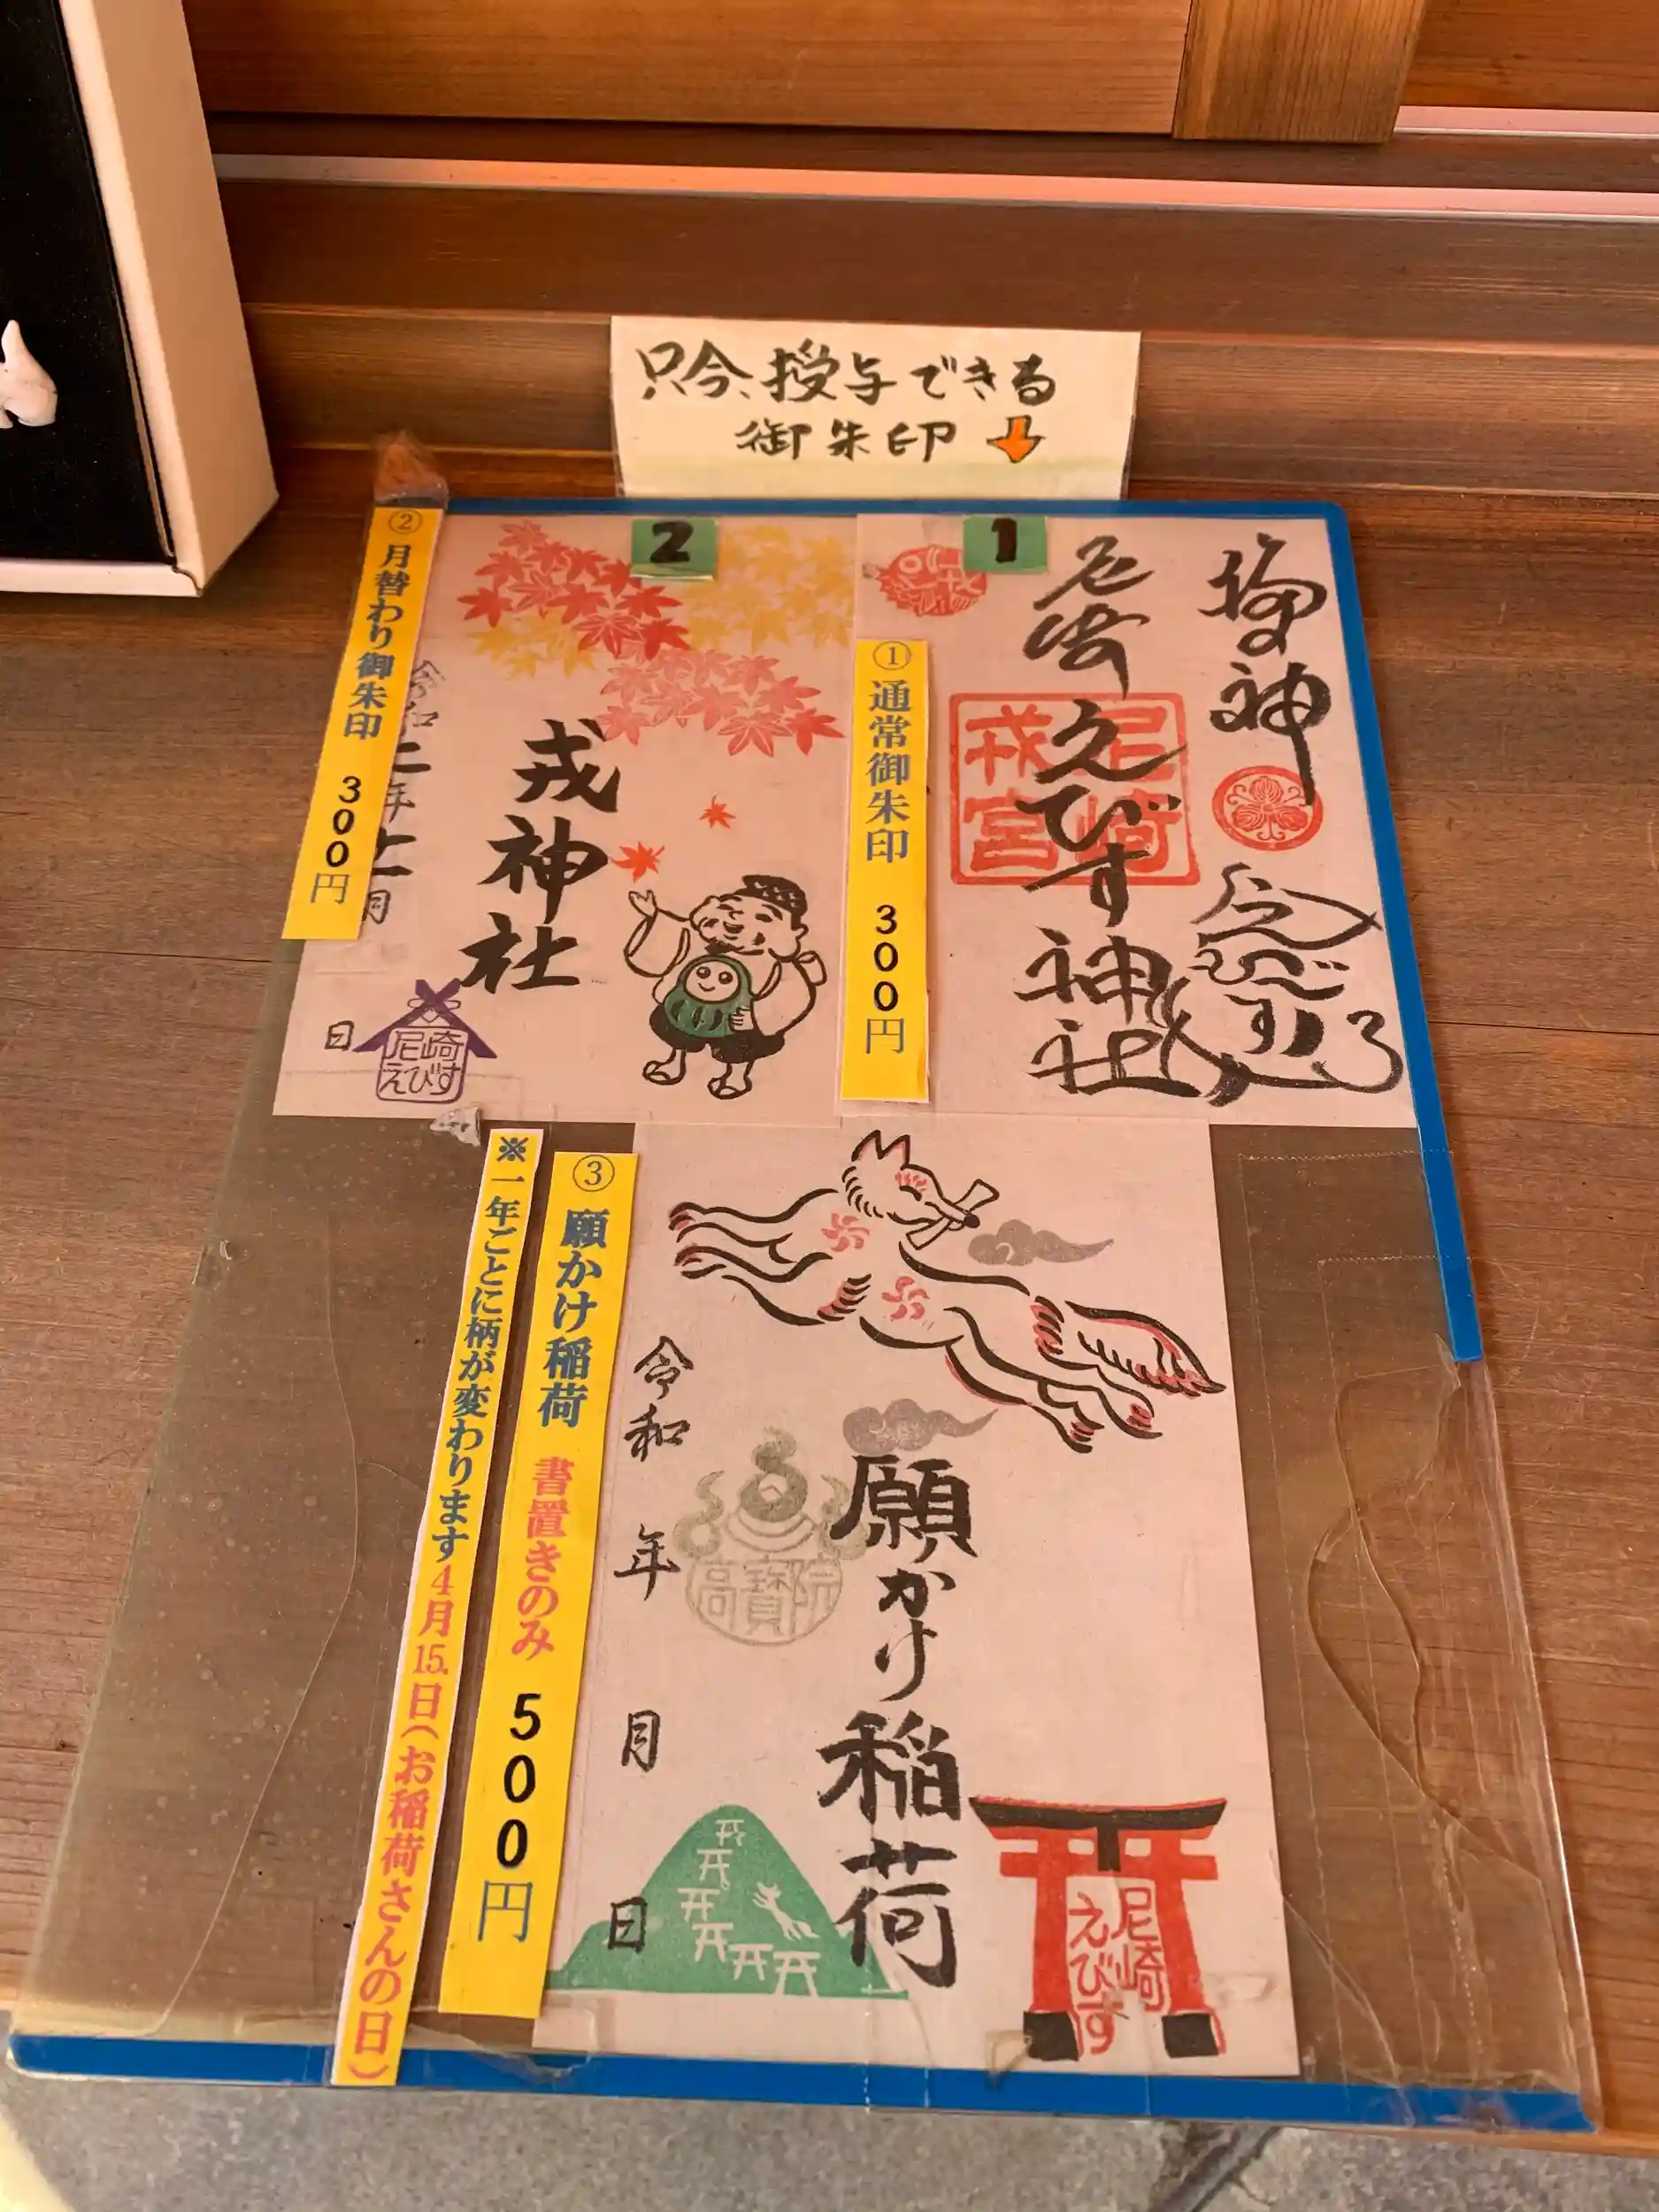 只今、授与できる
御朱印
1
尼崎えびす神社
尼崎
戎宮
①通常御朱印 300円
2
戎神社
②月替わり御朱印 300円
年
月
日
尼崎
えびす
③願かけ稲荷 書置きのみ 500円
※一年ごとに柄が変わります4月15.日(お稲荷さんの日)
願かけ稲荷
令和 年 月 日
尼崎
えびす